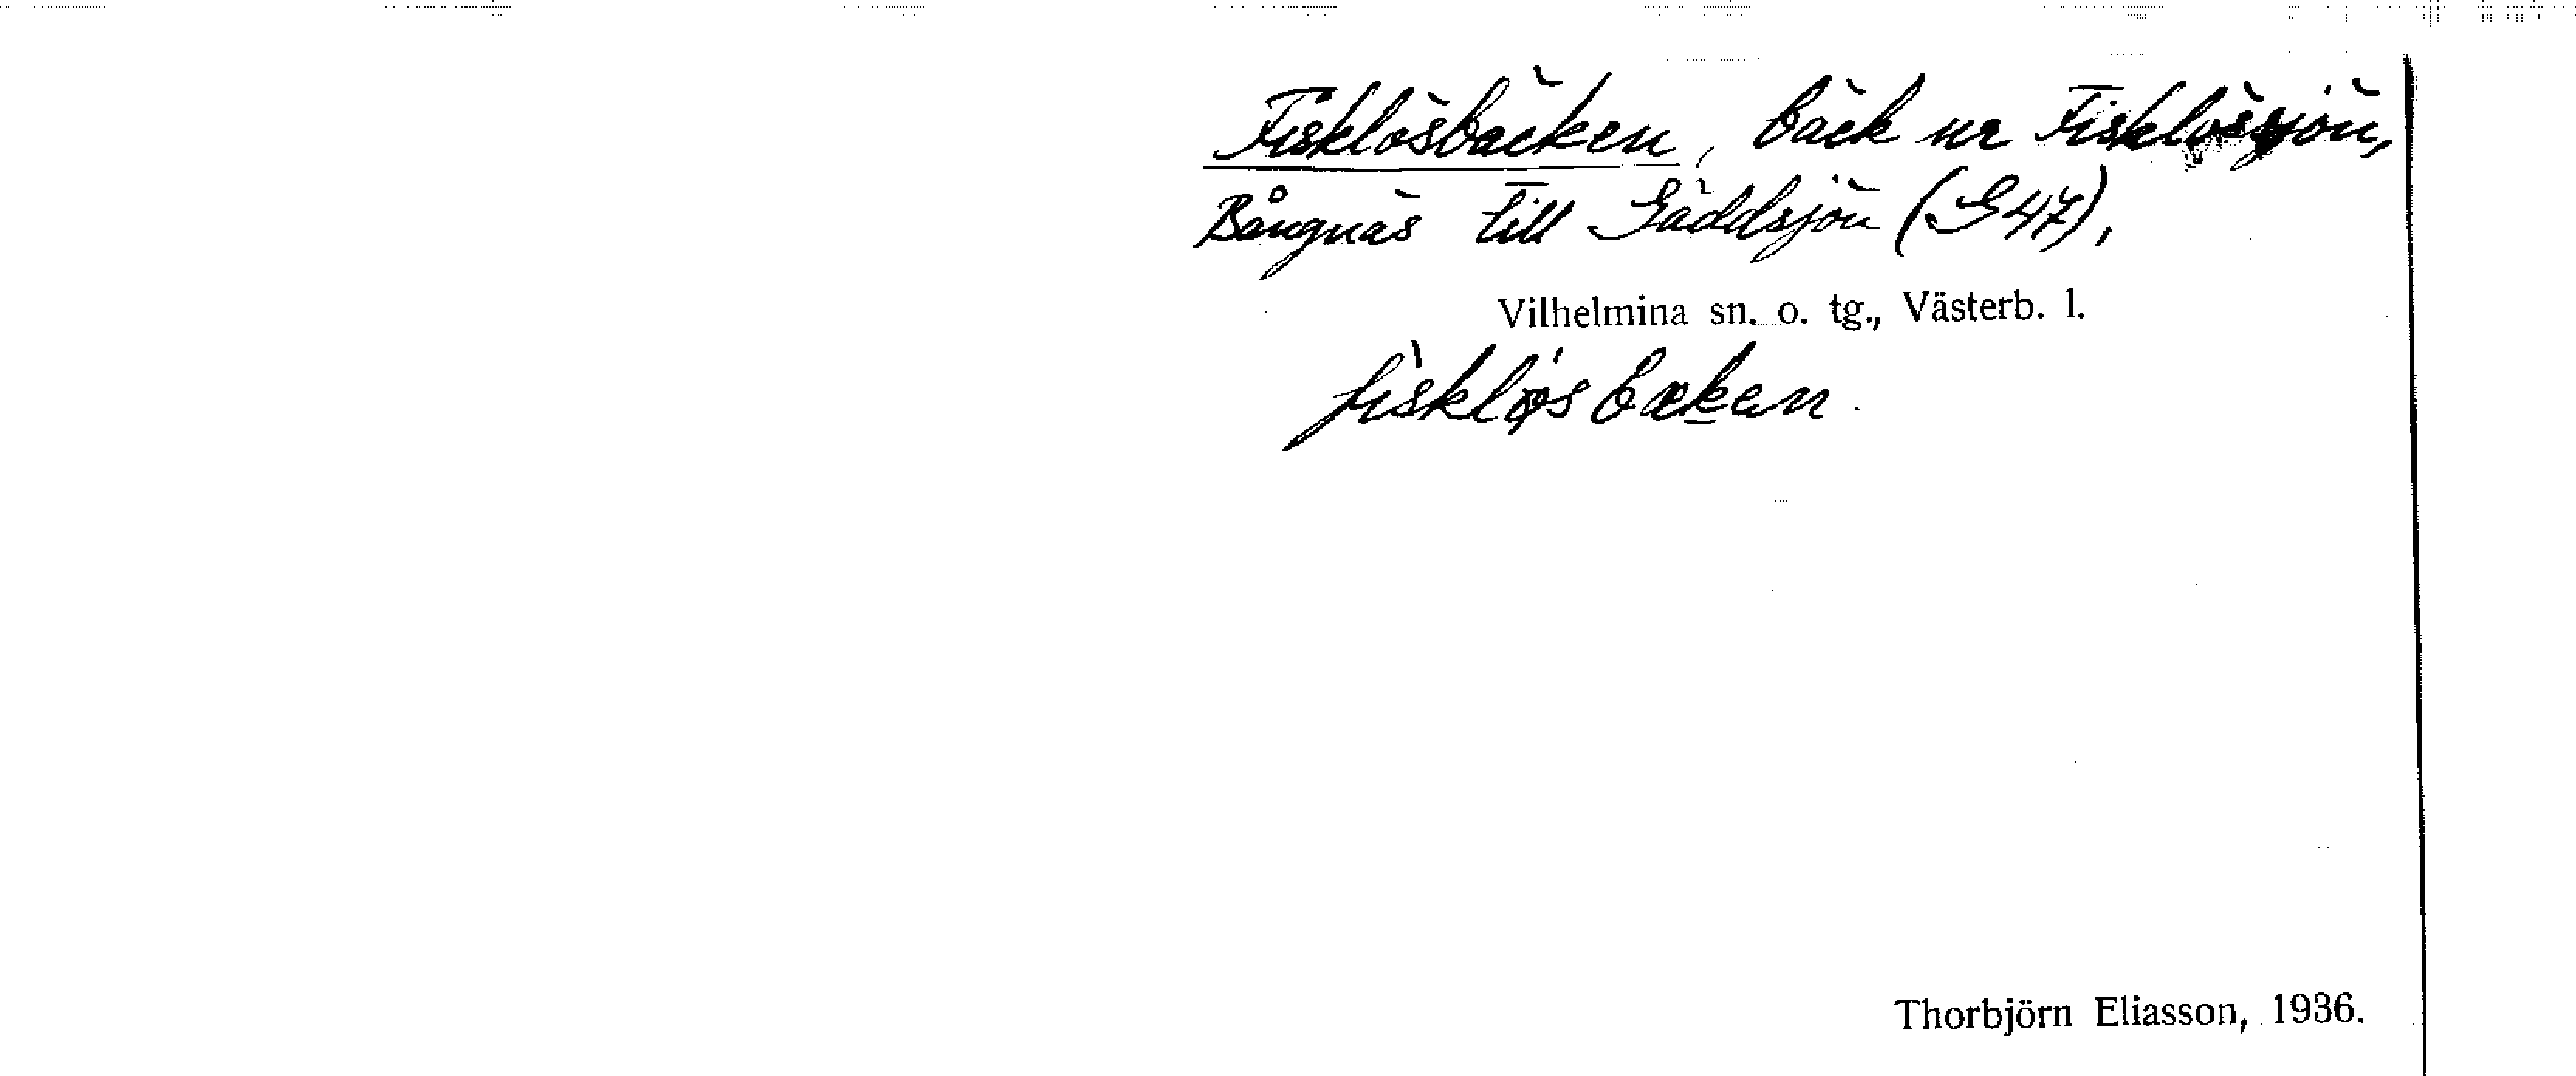 Fisklösbäcken, bäck ur Fisklössjön,
Bångnäs till Gäddsjön (G47),
Vilhelmina sn. o. tg., Västerb. l.
fìsklø̀sbækan
Thorbjörn Eliasson, 1936.